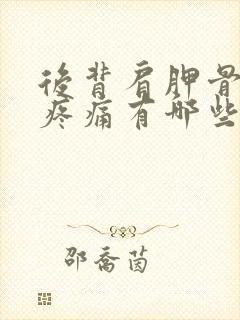 後背肩胛骨
疼痛有哪些
邵喬茵